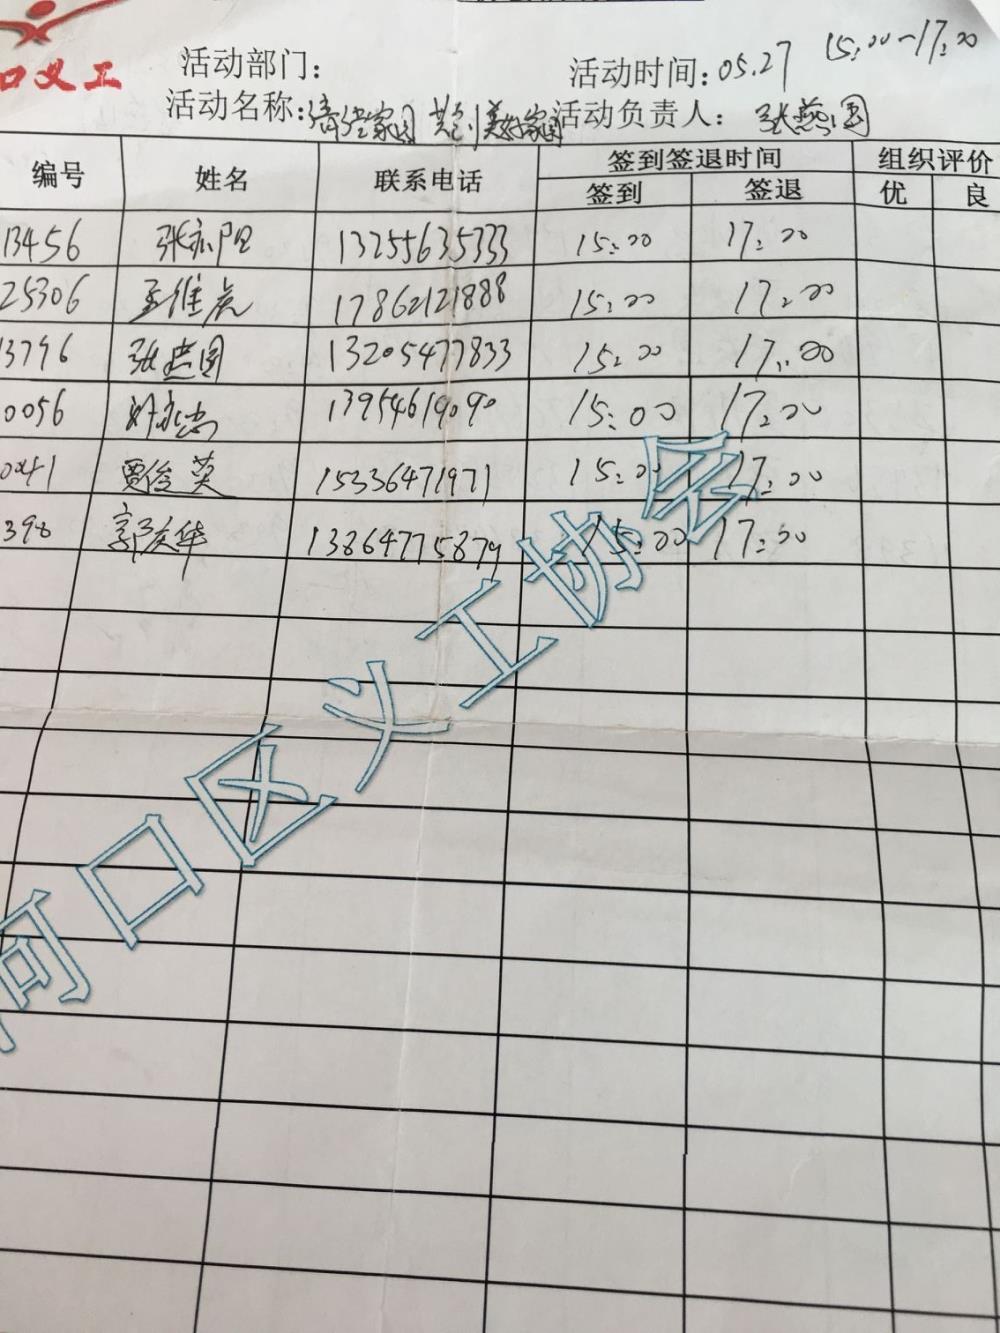 口义工
活动部门：
活动时间：05.27 15:00-17:00
活动名称：清洁家园 共创美好家园
活动负责人：张燕国
编号 姓名 联系电话 签到签退时间 组织评价
签到 签退 优 良
13456 张亦阳 13255635333 15:00 17:00
25306 王维虎 17862121888 15:00 17:00
3796 张燕国 13205477833 15:00 17:00
0056 13954619090 15:00 17:00
0041 贾俊英 15336471971 15:00 17:00
398 郭庆华 13864775879 15:00 17:00
河口区义工协会